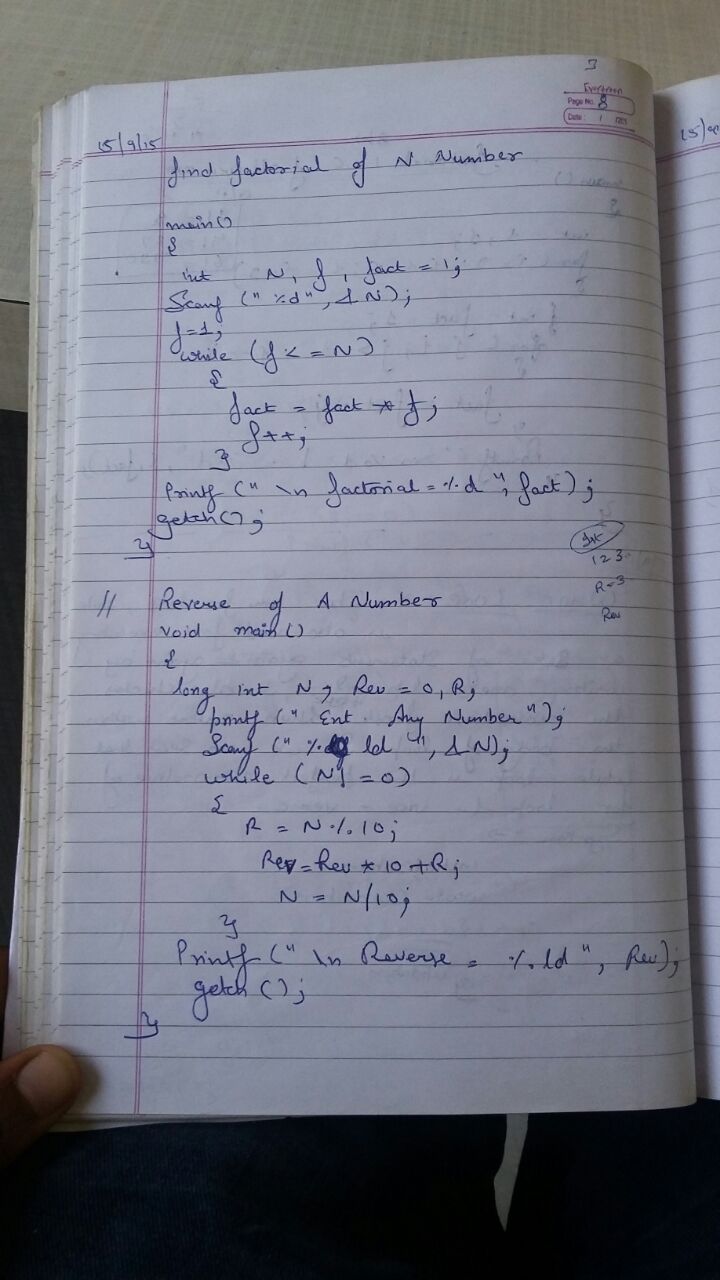 3
Evergreen
Page No. 8
Date: / /201
15/9/15
find factorial of N Number
main()
{
int N, f, fact = 1;
Scanf ("%d", &N);
f=1;
while (f <= N)
{
fact = fact * f;
f++;
}
Printf (" \n factorial = %d ", fact);
getch();
}
123
R=3
Rev
// Reverse of A Number
void main()
{
long int N, Rev = 0, R;
printf (" Ent. Any Number ");
Scanf (" % ld ", &N);
while (N! = 0)
{
R = N % 10;
Rev = Rev * 10 + R;
N = N/10;
}
Printf (" \n Reverse = %ld ", Rev);
getch ();
}